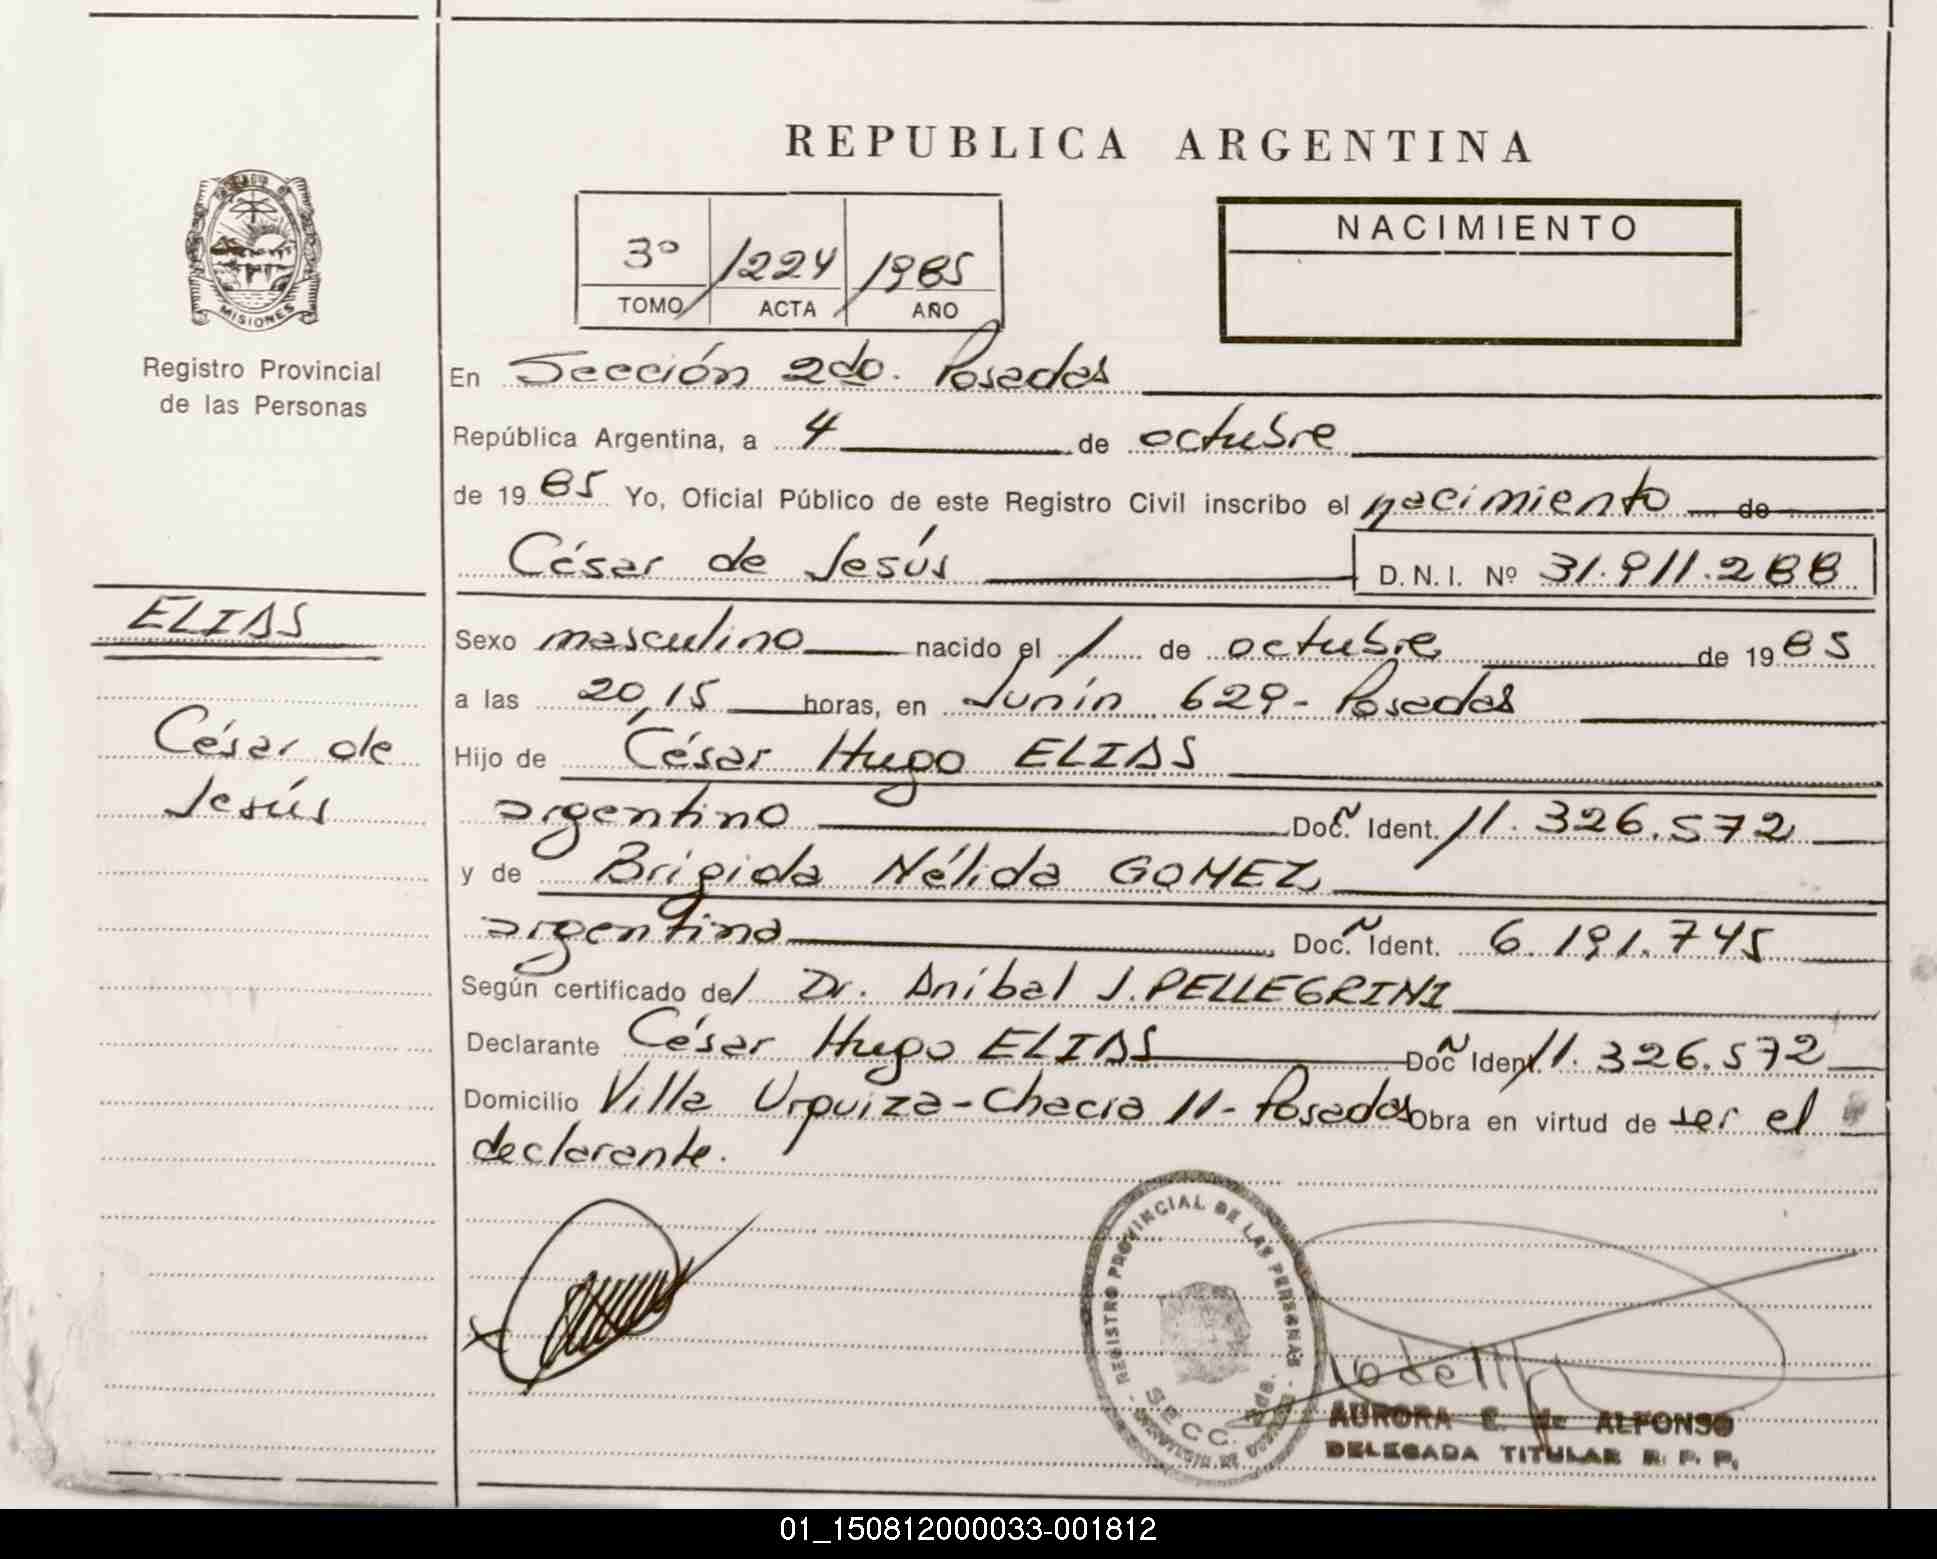 REPUBLICA ARGENTINA
NACIMIENTO
3º 1224 1985
TOMO ACTA AÑO
MISIONES
Registro Provincial
de las Personas
En Sección 2do. Posadas
República Argentina, a 4 de octubre
de 1985 Yo, Oficial Público de este Registro Civil inscribo el nacimiento de
César de Jesús D.N.I. Nº 31.911.288
ELIAS
César de
Jesús
Sexo masculino nacido el 1 de octubre de 1985
a las 20,15 horas, en Junín 629- Posadas
Hijo de César Hugo ELIAS
argentino Doc. Ident. 11.326.572
y de Brigida Nélida GOMEZ
argentina Doc. Ident. 6.191.745
Según certificado del Dr. Aníbal J. PELLEGRINI
Declarante César Hugo ELIAS Doc. Ident. 11.326.572
Domicilio Villa Urquiza-Chacra 11- Posadas Obra en virtud de ser el
declarante.
REGISTRO PROVINCIAL DE LAS PERSONAS
SECC. 2da.
AURORA E. de ALFONSO
DELEGADA TITULAR R. P. P.
01_150812000033-001812